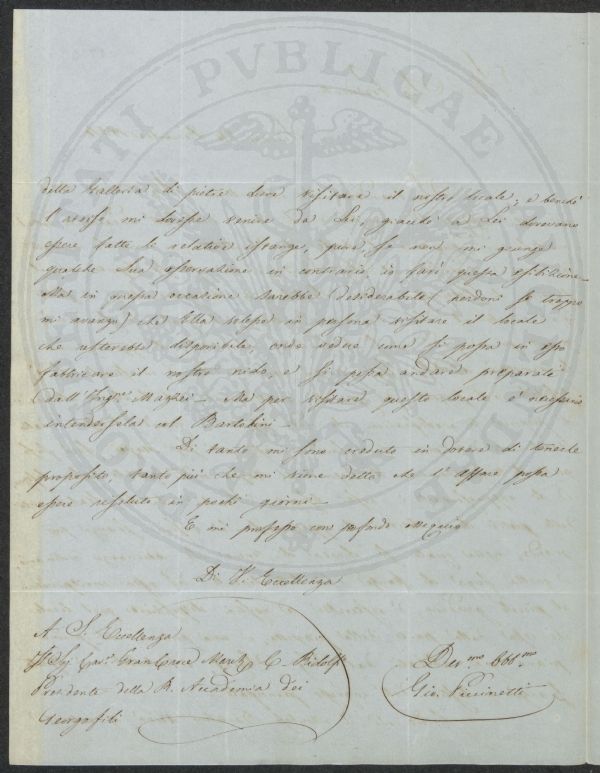 della Galleria di pietre dure visitare il nostro locale; e benchè
l'avviso mi dovesse venire da Lei, giacchè a Lei dovevano
essere fatte le relative istanze, pure, se non mi giunge
qualche Sua osservazione in contrario, io farò questa
Ma in questa occasione sarebbe desiderabile (perdoni se troppo
mi avanzo) che Ella volesse in persona visitare il locale
che resterebbe disponibile, onde vedere come si possa in esso
fabbricare il nostro nido, e si possa andare preparati
dall'Ingre. Mazzei – Ma per visitare questo locale è necessario
intendersela col Bartolini –
Di tanto mi sono creduto in dovere di tenerle
proposito, tanto più che mi viene detto che l'affare possa
essere risoluto in pochi giorni –
E mi professo con profondo ossequio
Di V. Eccellenza
A S. Eccellenza
Il Sig. Cav. Gran Croce March. C. Ridolfi
Presidente della R. Accademia dei
Georgofili
Dev.mo Obb.mo
Gio.
PVBLICAE